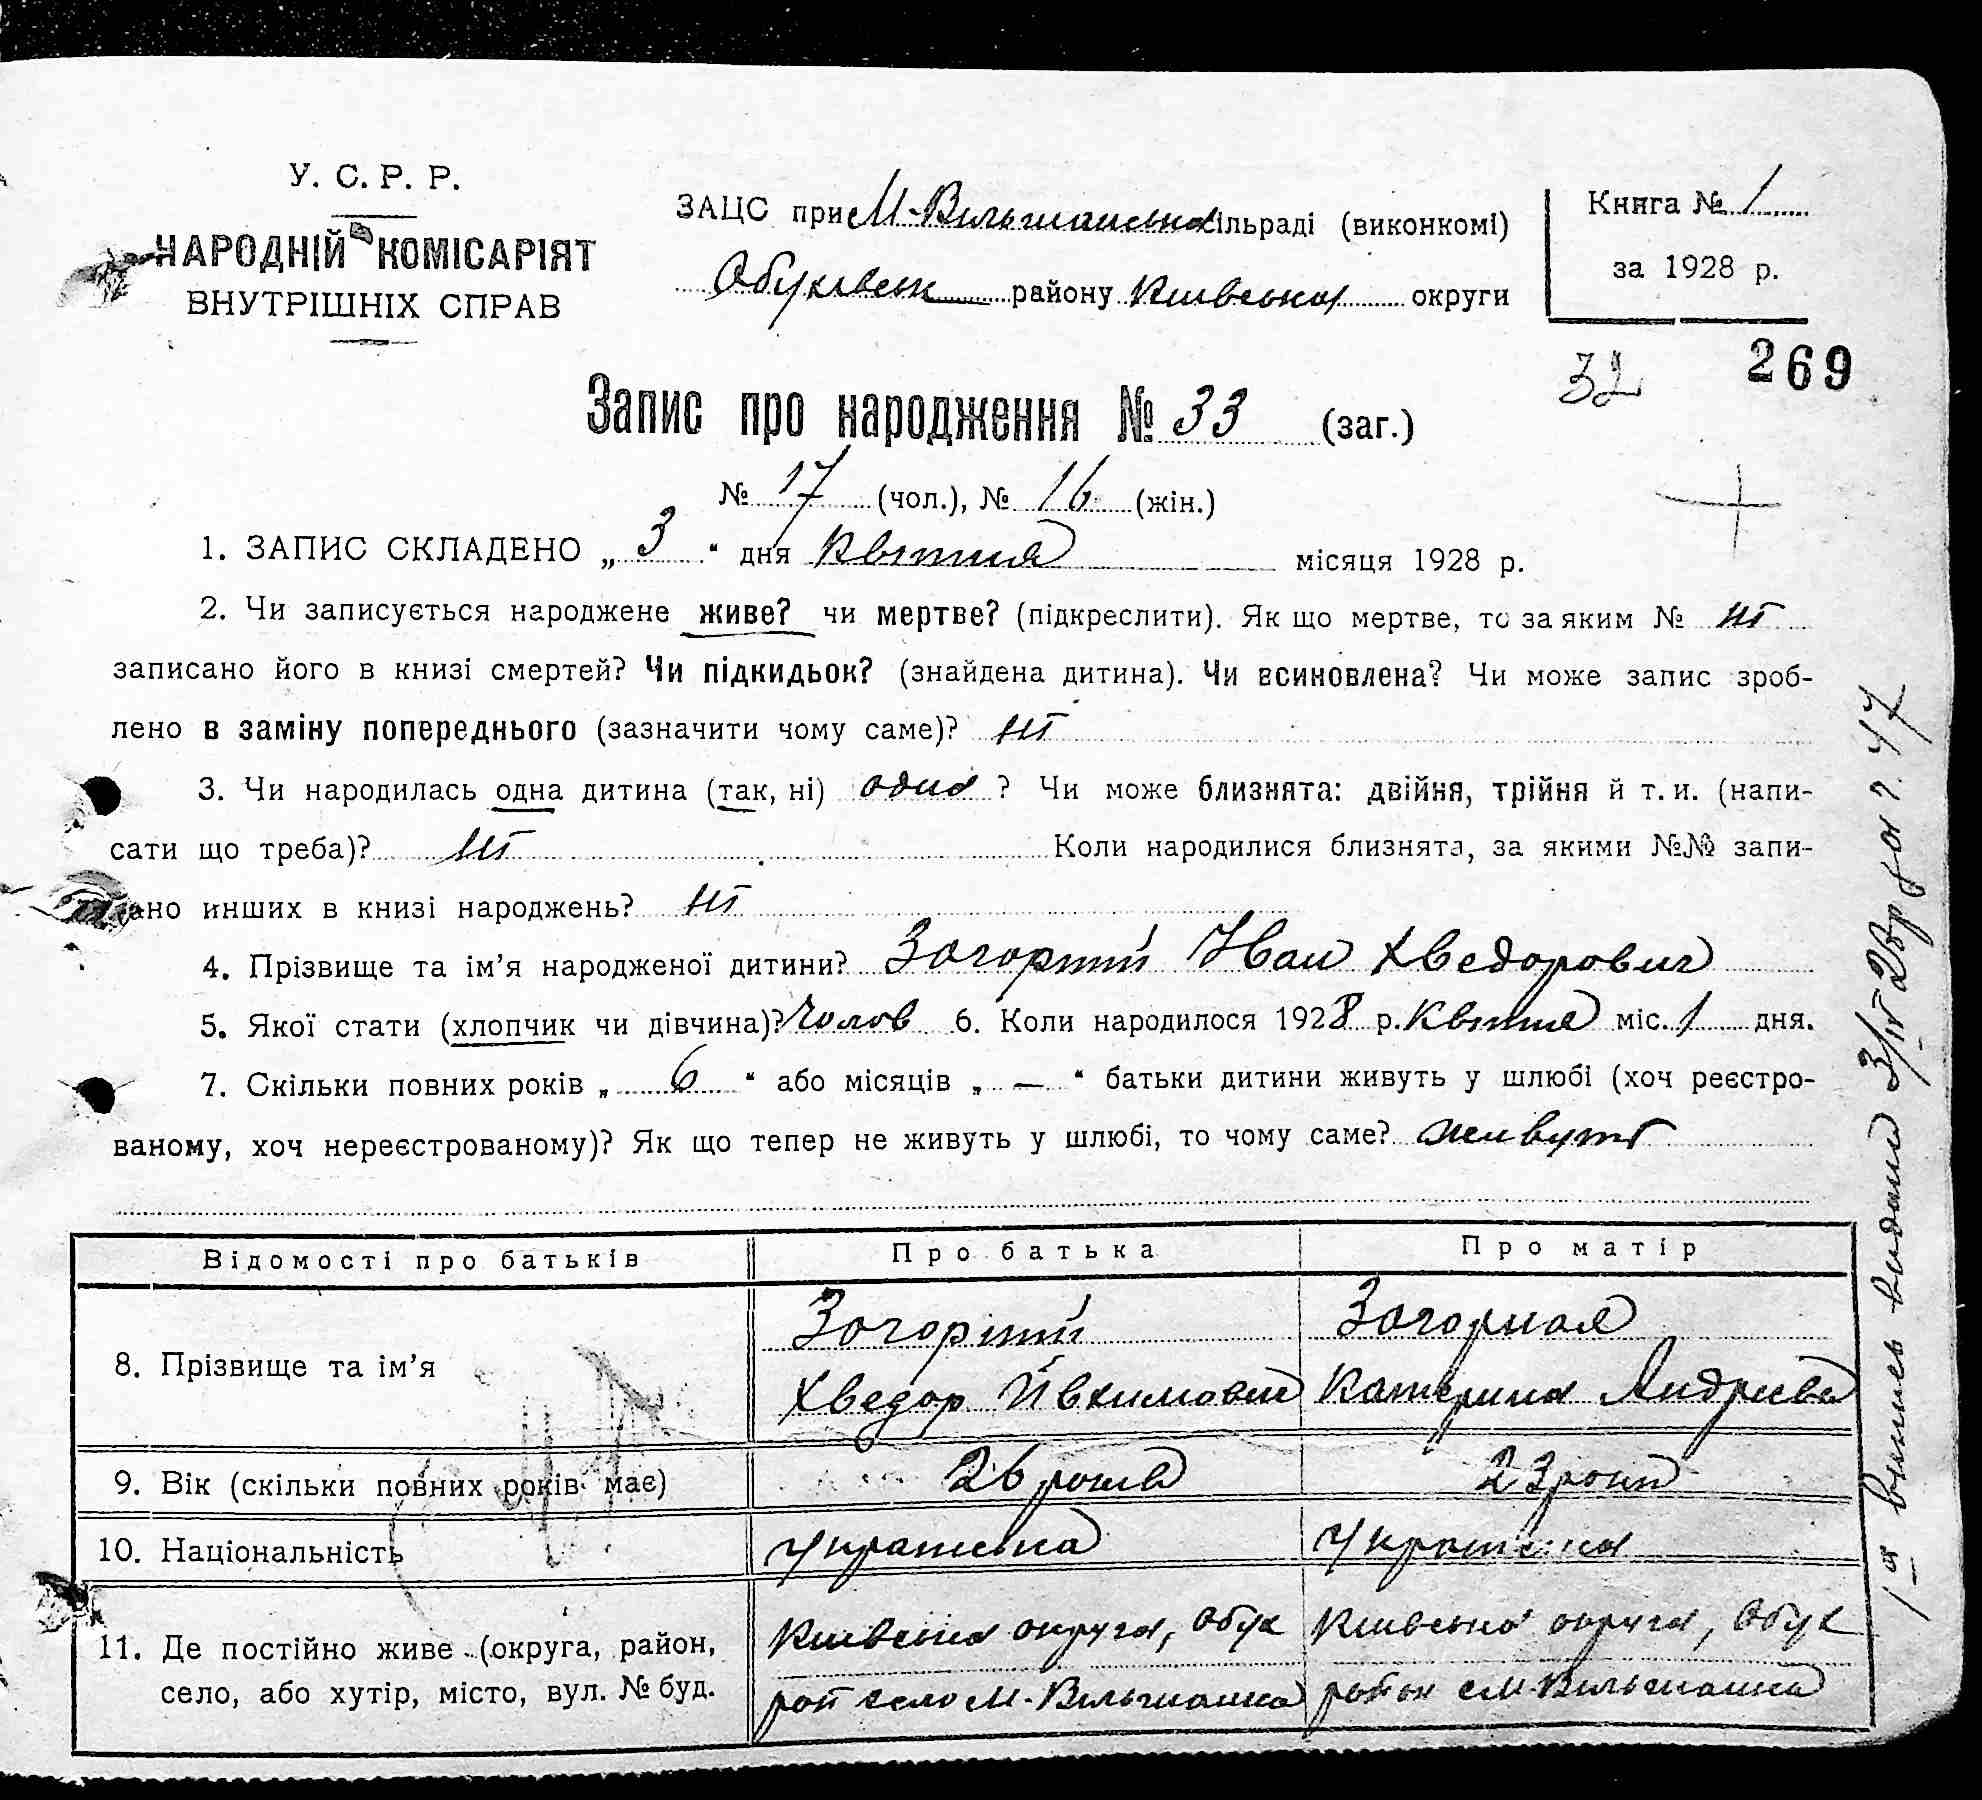 У. С. Р. Р.
НАРОДНІЙ КОМІСАРІЯТ
ВНУТРІШНІХ СПРАВ
ЗАЦС при М-Вільшанська сільраді (виконкомі)
Обухівськ району Київська округи
Книга № 1
за 1928 р.
32 269
Запис про народження № 33 (заг.)
№ 17 (чол.), № 16 (жін.)
1. ЗАПИС СКЛАДЕНО „ 3 “ дня Квітня місяця 1928 р.
2. Чи записується народжене живе? чи мертве? (підкреслити). Як що мертве, то за яким № ні
записано його в книзі смертей? Чи підкидьок? (знайдена дитина). Чи всиновлена? Чи може запис зроб-
лено в заміну попереднього (зазначити чому саме)? ні
3. Чи народилась одна дитина (так, ні) одна ? Чи може близнята: двійня, трійня й т. и. (напи-
сати що треба)? ні Коли народилися близнята, за якими №№ запи-
сано инших в книзі народжень? ні
4. Прізвище та ім’я народженої дитини? Загорний Иван Хведорович
5. Якої стати (хлопчик чи дівчина)? Чолов 6. Коли народилося 1928 р. Квітня міс. 1 дня.
7. Скільки повних років „ 6 “ або місяців „ — “ батьки дитини живуть у шлюбі (хоч реєстро-
ваному, хоч нереєстрованому)? Як що тепер не живуть у шлюбі, то чому саме? живуть
Відомості про батьків Про батька Про матір
8. Прізвище та ім’я
Загорний Загорная
Хведор Йвхимович Катерина Андреева
9. Вік (скільки повних років має) 26 років 23 роки
10. Національність Українська Українська
11. Де постійно живе (округа, район,
село, або хутір, місто, вул. № буд.
Київська округа, Обух Київська округа, Обух
рай село М-Вільшанка район с М-Вільшанка